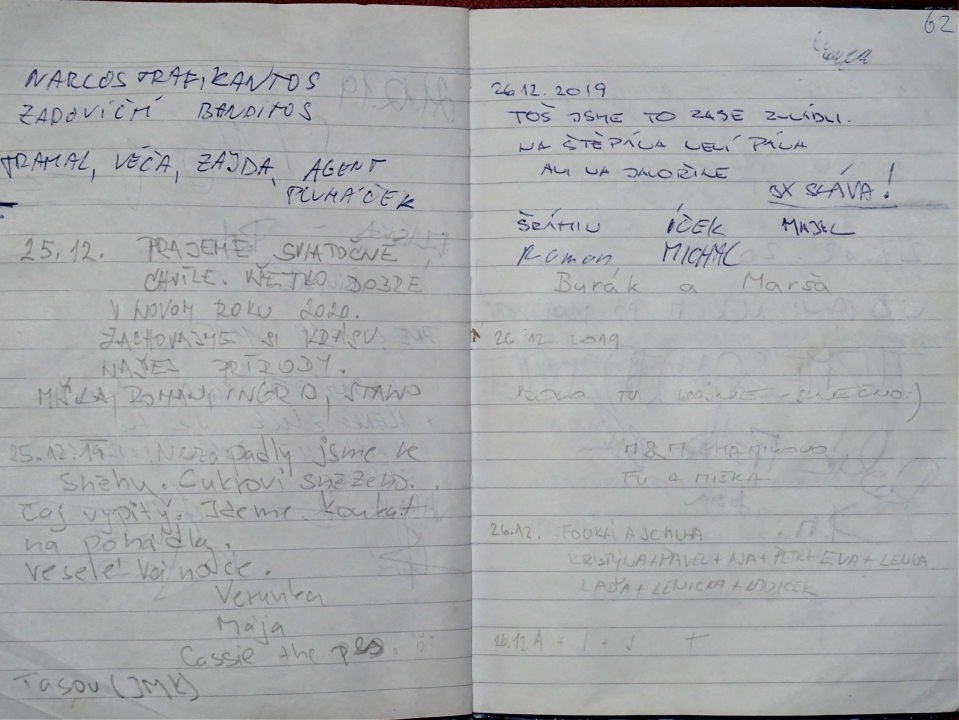 NARCOS TRAFIKANTOS
ZADOVIČTÍ BANDITOS
TRAMAL, VÉČA, ZAJDA, AGENT
PLUHÁČEK
25.12. PRAJEME SVIATOČNÉ
CHVÍLE. VŠETKO DOBRÉ
V NOVOM ROKU 2020.
ZACHOVAJME SI KRÁSU
NAŠEJ PRÍRODY.
MIŠKA, ROMAN, INGRID, STANO
25.12.19 Nezapadly jsme ve
sněhu. Cukroví snězeno.
Čaj vypitý. Jdeme koukat
na pohádky.
Veselé Vánoce.
Verunka
Mája
Cassie the pes.
Tasov (JMK)
62
26.12.2019
TOŠ JSME TO ZASE ZVLÁDLI.
NA ŠTĚPÁNA NENÍ PÁNA
ANI NA JAVOŘINE
3X SLÁVA!
ÍČEK
Roman MICHAL
Burák a Marša
26 12 2019
TU
M & M
A MIŠKA
26.12. FOUKÁ
KRISTÝNA+PAVEL+ + PETR+EVA+LENKA
LAĎA+LENIČKA+LADÍČEK
26.12 A + +